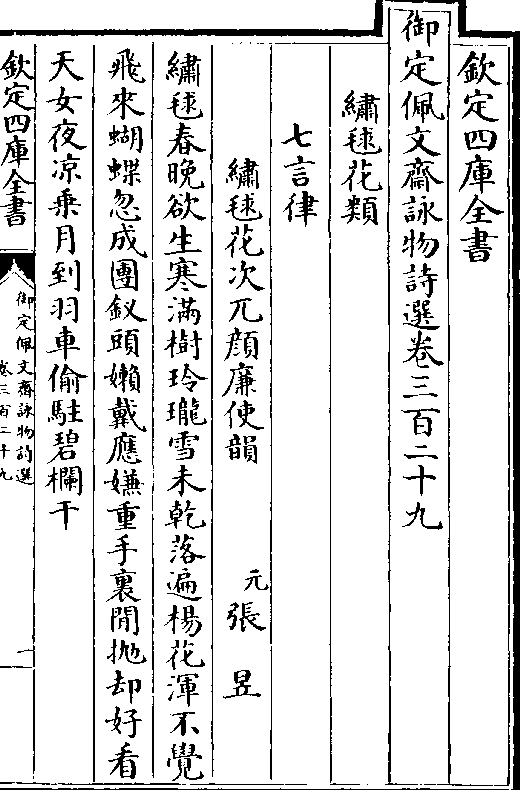 欽定四庫全書
御定佩文齋詠物詩選卷三百二十九
繡毬花類
七言律
繡毬花次兀顔廉使韻 元張昱
繡毬春晩欲生寒滿樹玲瓏雪未乾落遍楊花渾不覺
飛來蝴蝶忽成團釵頭嬾戴應嫌重手裏閒抛却好看
天女夜凉乗月到羽車偷駐碧欄干
欽定四庫全書
御定佩文齋詠物詩選
卷三百二十九
一